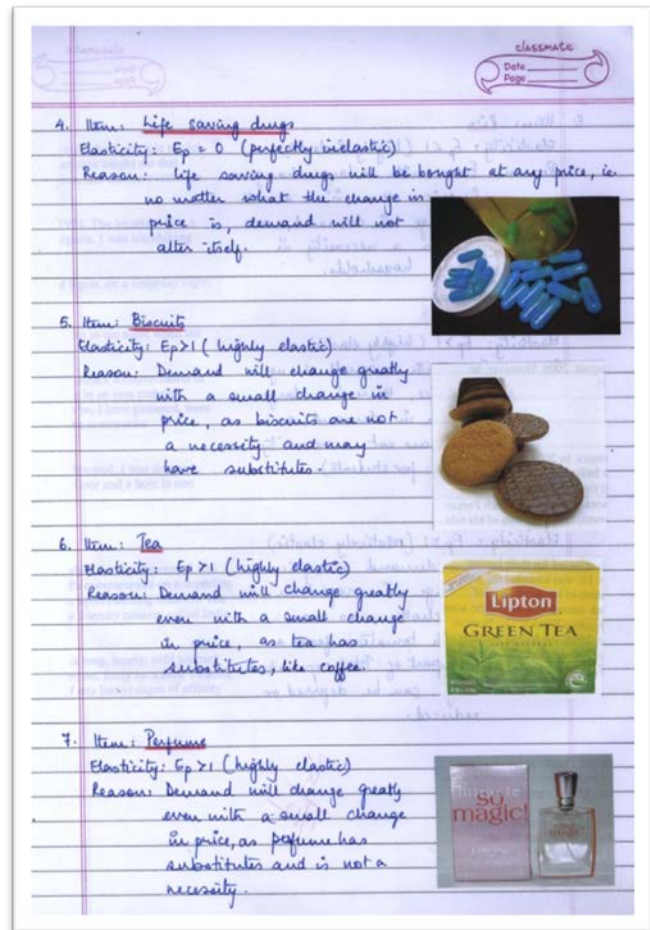 classmate
Date
Page
4. Item: Life saving drugs
Elasticity: Ep = 0 (perfectly inelastic)
Reason: life saving drugs will be bought at any price, ie.
no matter what the change in
price is, demand will not
alter itself.
5. Item: Biscuits
Elasticity: Ep>1 (highly elastic)
Reason: Demand will change greatly
with a small change in
price, as biscuits are not
a necessity and may
have substitutes.
6. Item: Tea
Elasticity: Ep>1 (highly elastic)
Reason: Demand will change greatly
even with a small change
in price, as tea has
substitutes, like coffee.
Lipton
GREEN TEA
7. Item: Perfume
Elasticity: Ep>1 (highly elastic)
Reason: Demand will change greatly
even with a small change
in price, as perfume has
substitutes and is not a
necessity.
miracle
so
magic!